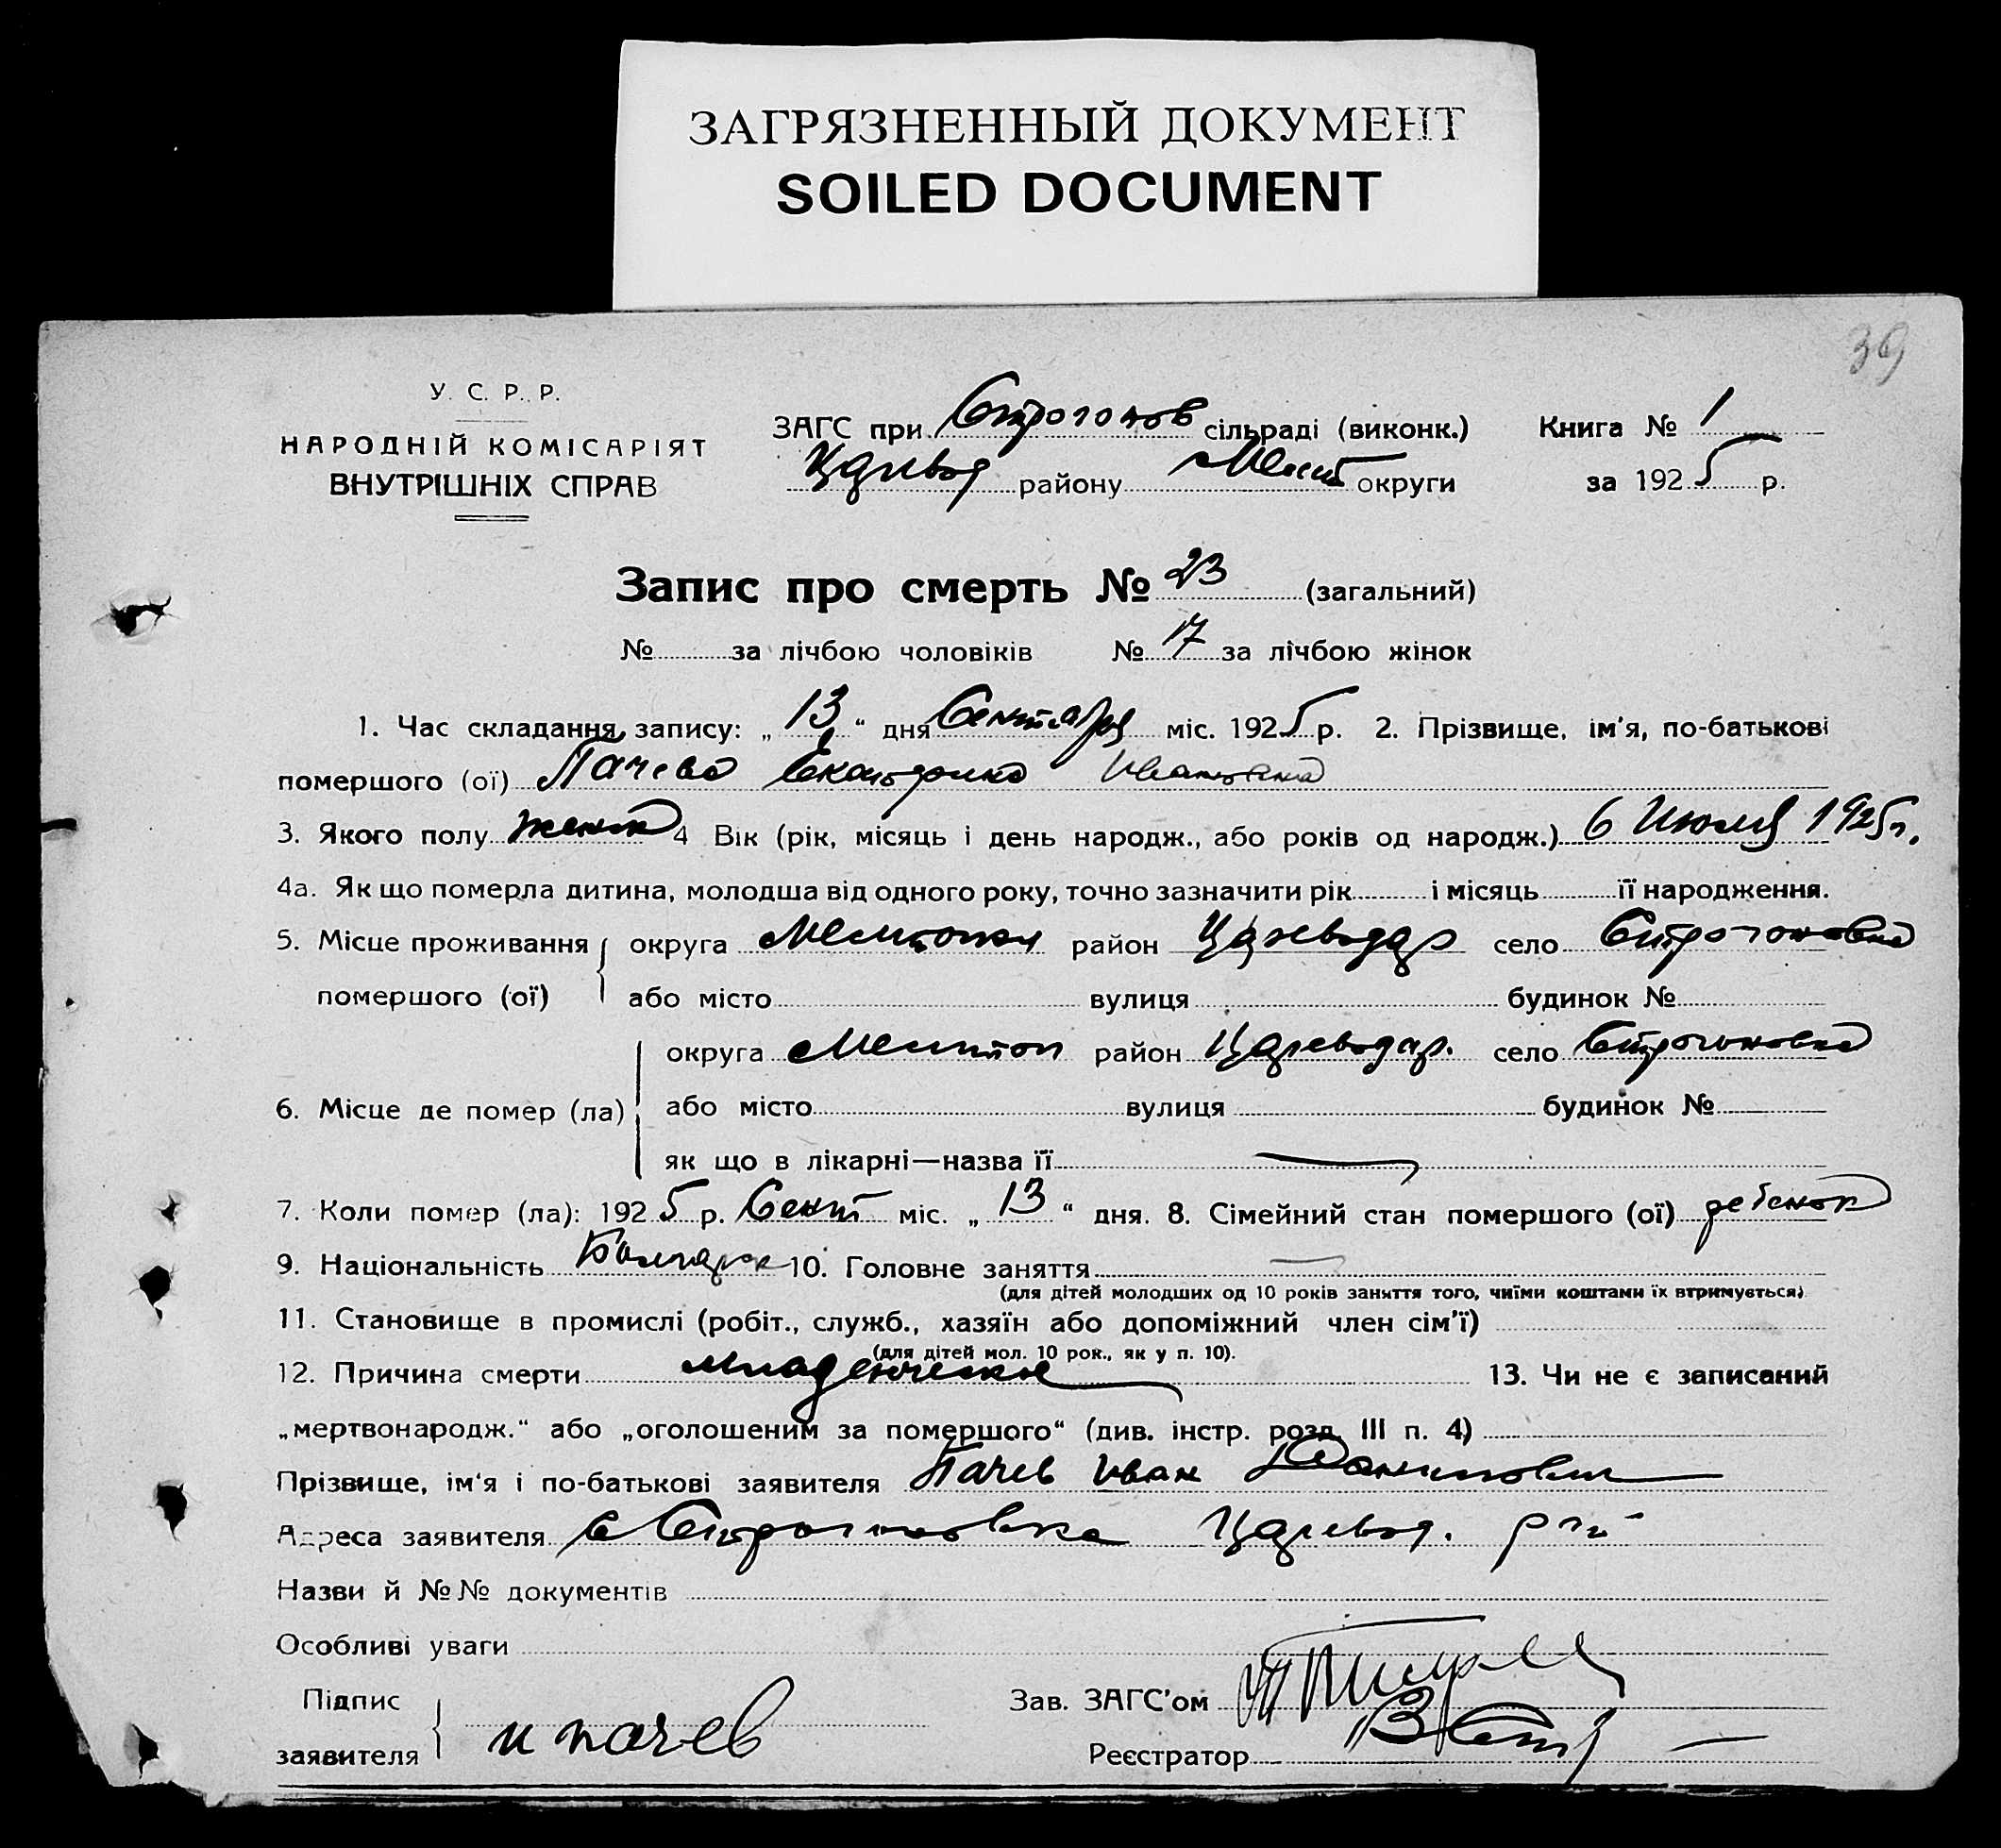 ЗАГРЯЗНЕННЫЙ ДОКУМЕНТ
SOILED DOCUMENT
39
У. С. Р. Р.
НАРОДНІЙ КОМІСАРІЯТ
ВНУТРІШНІХ СПРАВ
ЗАГС при Строгонов сільраді (виконк.)
Царевод району Мелит округи
Книга № 1
за 1925 р.
Запис про смерть № 23 (загальний)
№ за лічбою чоловіків № 17 за лічбою жінок
1. Час складання запису: „ 13 “ дня Сентября міс. 1925 р. 2. Прізвище, ім'я, по-батькові
помершого (ої) Пачева Екатерина Ивановна
3. Якого полу женск 4 Вік (рік, місяць і день народж., або років од народж.) 6 Июля 1925г.
4а. Як що померла дитина, молодша від одного року, точно зазначити рік і місяць її народження.
5. Місце проживання помершого (ої) округа Мелитопол район Цареводар село Строгоновка
або місто вулиця будинок №
6. Місце де помер (ла) округа Мелитоп район Цареводар. село Строгоновка
або місто вулиця будинок №
як що в лікарні—назва її —
7. Коли помер (ла): 1925 р. Сент міс. „ 13 “ дня. 8. Сімейний стан помершого (ої) ребенок
9. Національність Болгарка 10. Головне заняття —
(для дітей молодших од 10 років заняття того, чиїми коштами їх втримується)
11. Становище в промислі (робіт., служб., хазяїн або допоміжний член сім'ї)
(для дітей мол. 10 рок., як у п. 10).
12. Причина смерти младенческая 13. Чи не є записаний
„мертвонародж.“ або „оголошеним за помершого“ (див. інстр. розд. III п. 4)
Прізвище, ім'я і по-батькові заявителя Пачев Иван Данилович
Адреса заявителя с Строгоновка Царевод. р-н
Назви й №№ документів
Особливі уваги
Підпис заявителя и пачев
Зав. ЗАГС'ом
Реєстратор